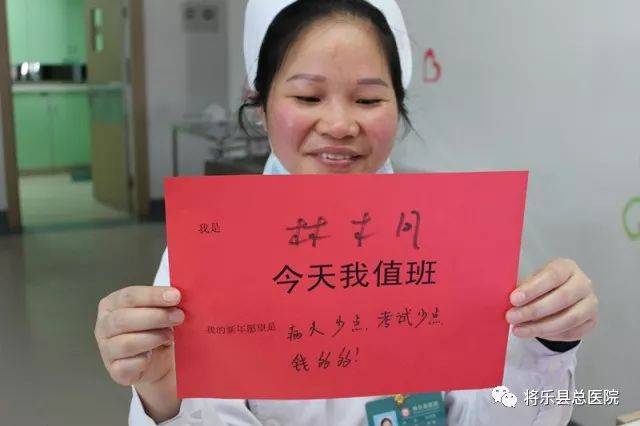 我是 林丰月
今天我值班
我的新年愿望是 病人少点、考试少点
钱多多!
将乐县总医院